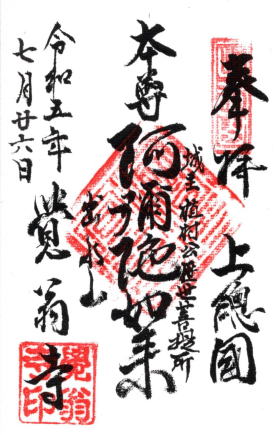 奉拝 上總國
城主植村公歴世菩提所
本尊 阿彌陀如来
出水山
覺翁寺
令和五年
七月廿六日
覺翁
寺印